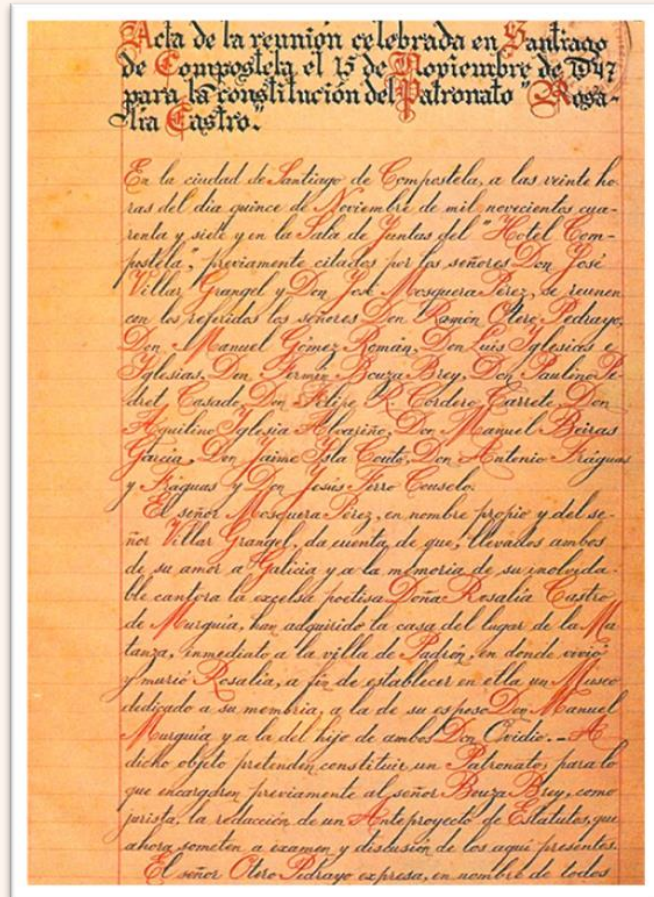 Acta de la reunión celebrada en Santiago
de Compostela el 15 de Noviembre de 1947
para la constitución del Patronato "Rosa-
lía Castro".
En la ciudad de Santiago de Compostela, a las veinte ho-
ras del dia quince de Noviembre de mil novecientos cua-
renta y siete y en la Sala de Juntas del "Hotel Com-
postela", previamente citados por los señores Don José
Villar Grangel y Don José Mosquera Pérez, se reunen
con los referidos los señores Don Ramón Otero Pedrayo,
Don Manuel Gómez Román, Don Luis Iglesias e
Iglesias, Don Fermin Bouza Brey, Don Paulino Pe-
dret Casado, Don Felipe R. Cordero Carrete, Don
Aquilino Iglesia Alvariño, Don Manuel Beiras
García, Don Jaime Isla Couto, Don Antonio Fráguas
y Fráguas y Don Jesús Ferro Couselo.
El señor Mosquera Pérez, en nombre propio y del se-
ñor Villar Grangel, da cuenta de que, llevados ambos
de su amor a Galicia y a la memoria de su inolvida-
ble cantora la excelsa poetisa Doña Rosalía Castro
de Murguía, han adquirido la casa del lugar de la Ma-
tanza, inmediato a la villa de Padrón, en donde vivió
y murió Rosalía, a fin de establecer en ella un Museo
dedicado a su memoria, a la de su esposo Don Manuel
Murguía y a la del hijo de ambos Don Ovidio. - A
dicho objeto pretenden constituir un Patronato, para lo
que encargaron previamente al señor Bouza Brey, como
jurista, la redacción de un Anteproyecto de Estatutos, que
ahora someten a examen y discusión de los aquí presentes.
El señor Otero Pedrayo expresa, en nombre de todos